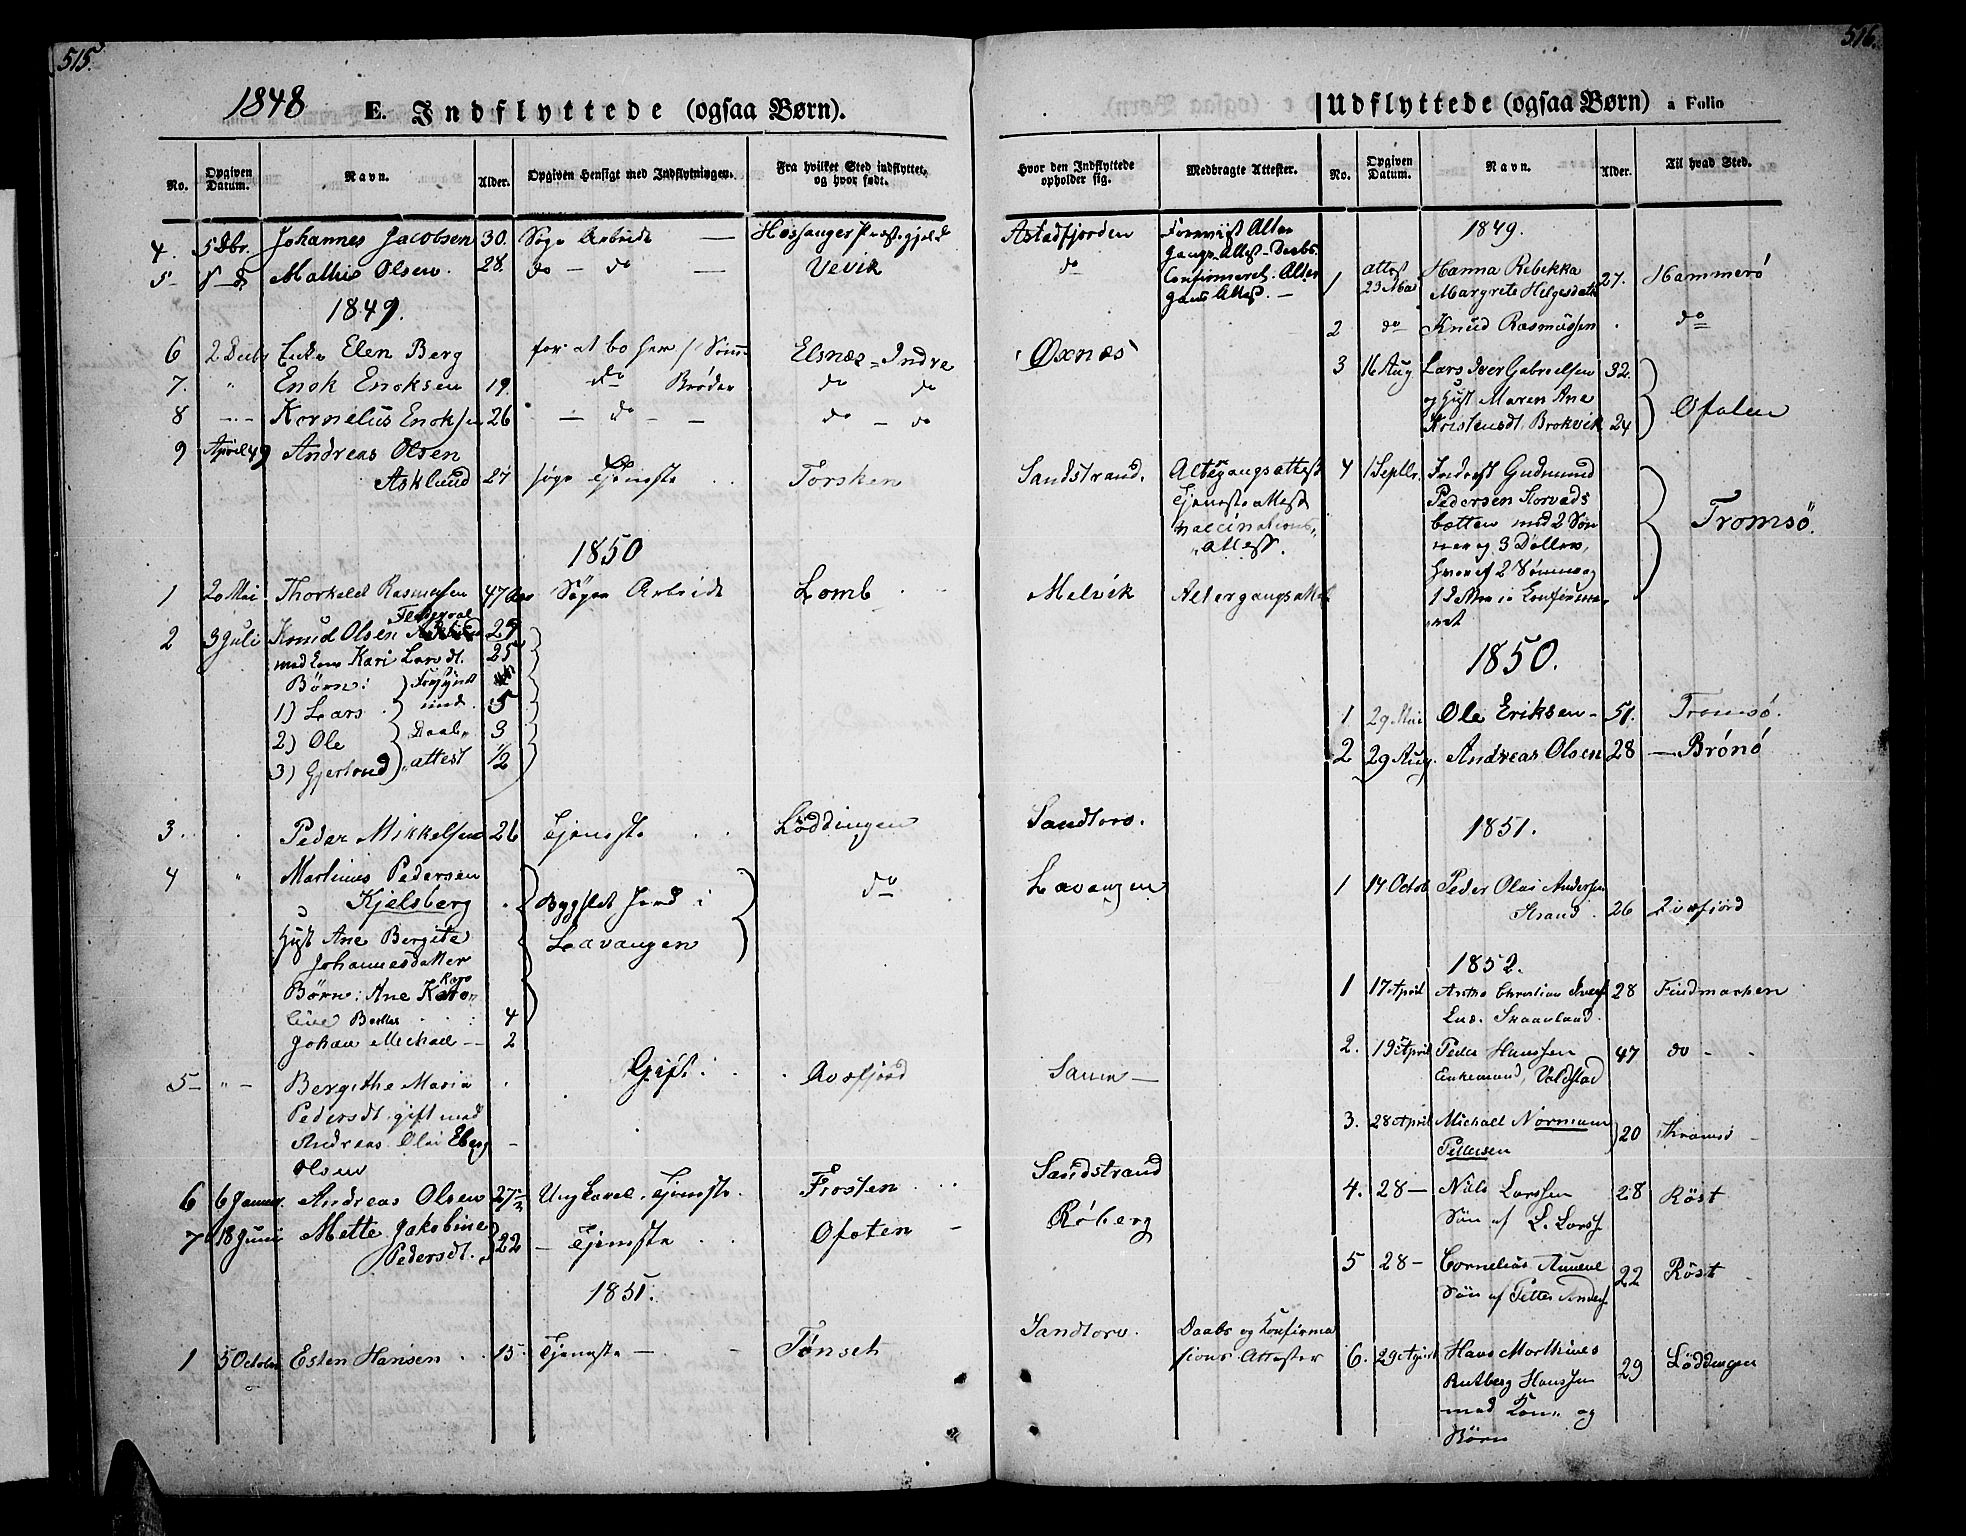 515.
1848 E. Indflyttede (ogsaa Børn).
No. Opgiven Datum. Navn. Alder. Opgiven Hensigt med Indflytningen. Fra hvilket Sted indflyttet, og hvor født.
4. 5 Dbr. Johannes Jacobsen 30. Søge Arbeide — Hosanger Præstegjeld
5 Mathis Olsen. 28. do — do — Vevik
1849.
6 2 Decbr Enke Elen Berg for at bo her Elsnæs Indre
7. " Enok Enoksen 19. do Brøder do do
8 Kornelius Enoksen 26 — do — — do — do
9 April 49 Andreas Olsen
Asklund 27 søge Tjeneste Torsken
1850
1 20 Mai Thorkeld Rasmusen 47 Aar Søge Arbeide Lomb
2 3 Juli Knud Olsen 29
med Kone Kari Larsdt. 25
Børn:
1) Lars 5
2) Ole Daabs 3
3) Gjertrud attest 1/2
3. Peder Mikkelsen 26 Tjeneste Løddingen
4 " Martinus Pedersen
Kjelsberg Bygslet Jord i do
Hust Ane Bergite Lavangen
Johannesdatter
Børn: Ane Karo
line 4
Johan Michael — 2
5 " — Bergithe Maria Gift Qvæfjord
Pedersdt. gift med
Andreas Olai Eberg
Olsen
6 6 Januar. Andreas Olsen 27 Ungkarl. Tjeneste. Trosten
7 18 Juni Mette Jakobine
Pedersdt. 22 — Tjeneste Ofoten
1851.
1 5 October Esten Hansen 15. Tjeneste — Tønset
516.
Udflyttede (ogsaa Børn) a Folio
Hvor den Indflyttede opholder sig. Medbragte Attester. No. Opgiven Datum. Navn. Alder. Til hvad Sted.
Astadfjorden Foreviist Alter
gangs Attest - Daabs
do Confirmered. Alter
gans Attest. —
Oxnæs
Sandstrand. Altergangsattest
Tjenesteattest
Vaccinations
attest.
Melvik Altergangsattest
Sandtorv.
Lavangen
Sauen —
Sandstrand
Røberg
Sandtorv. Daabs og Konfirma
tions Attester
1849.
1 attest 23 Mai Hanna Rebekka
Margrete Helgesdatt 27. Hammerø
2 do Knud Rasmussen do
3 16 Aug Lars Iver Gabrielsen 32.
og Hust Maren Ane
Kristensdt. Brokvik 24 Ofoten
4 1 Septbr. Inderst Gudmund
Pedersen Storvads
bætten med 2 Søn
ner og 3 Døttre, Tromsö.
hvoraf 2 Sønner og
1 Datter ere Confirme
ret
1850.
1 29 Mai Ole Eriksen — 51. Tromsø.
2 29 Aug. Andreas Olsen 28 — Brønø
1851.
1 14 Octob Peder Olai Andersen
Strand 26 Qvæfjord
1852.
1 17 April Christian 28 Findmarken
Skaanland.
2. 19 April Peder Hanssen 47 do —
Enkemand, Voldstad
3. 28 April Michael Normann
Pettersen 20 Tromsø
4. 28 — Nils Larssen 28 Röst
Søn af L. Larss.
5 28 — Cornelius 22 Röst
Søn af Petter Anders.
6. 29 April Hans Marthines
Rutberg Hanssen 29 Løddingen
med Kone og
Børn